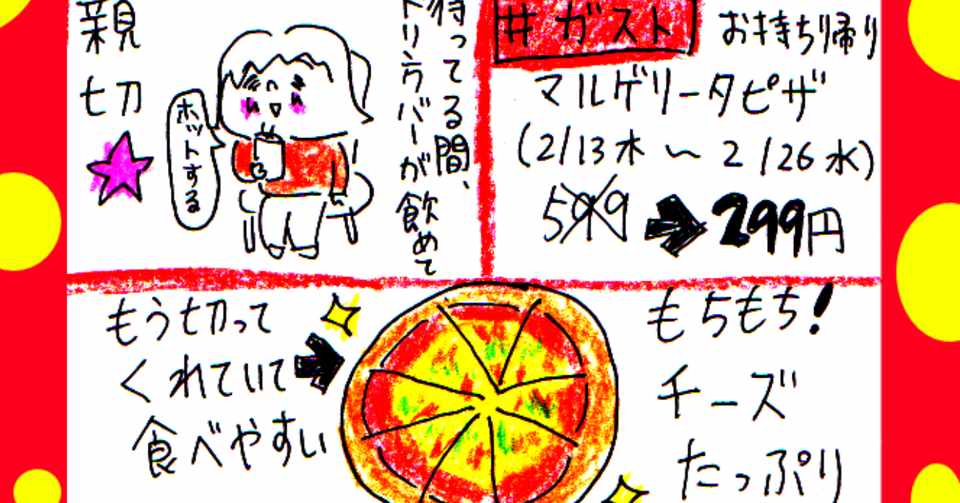 #ガスト お持ち帰り
マルゲリータピザ
(2/13木~2/26水)
599➡299円
待ってる間、
ドリンクバーが飲めて
親切
ホットする
もちもち!
チーズ
たっぷり
もう切って
くれていて
食べやすい